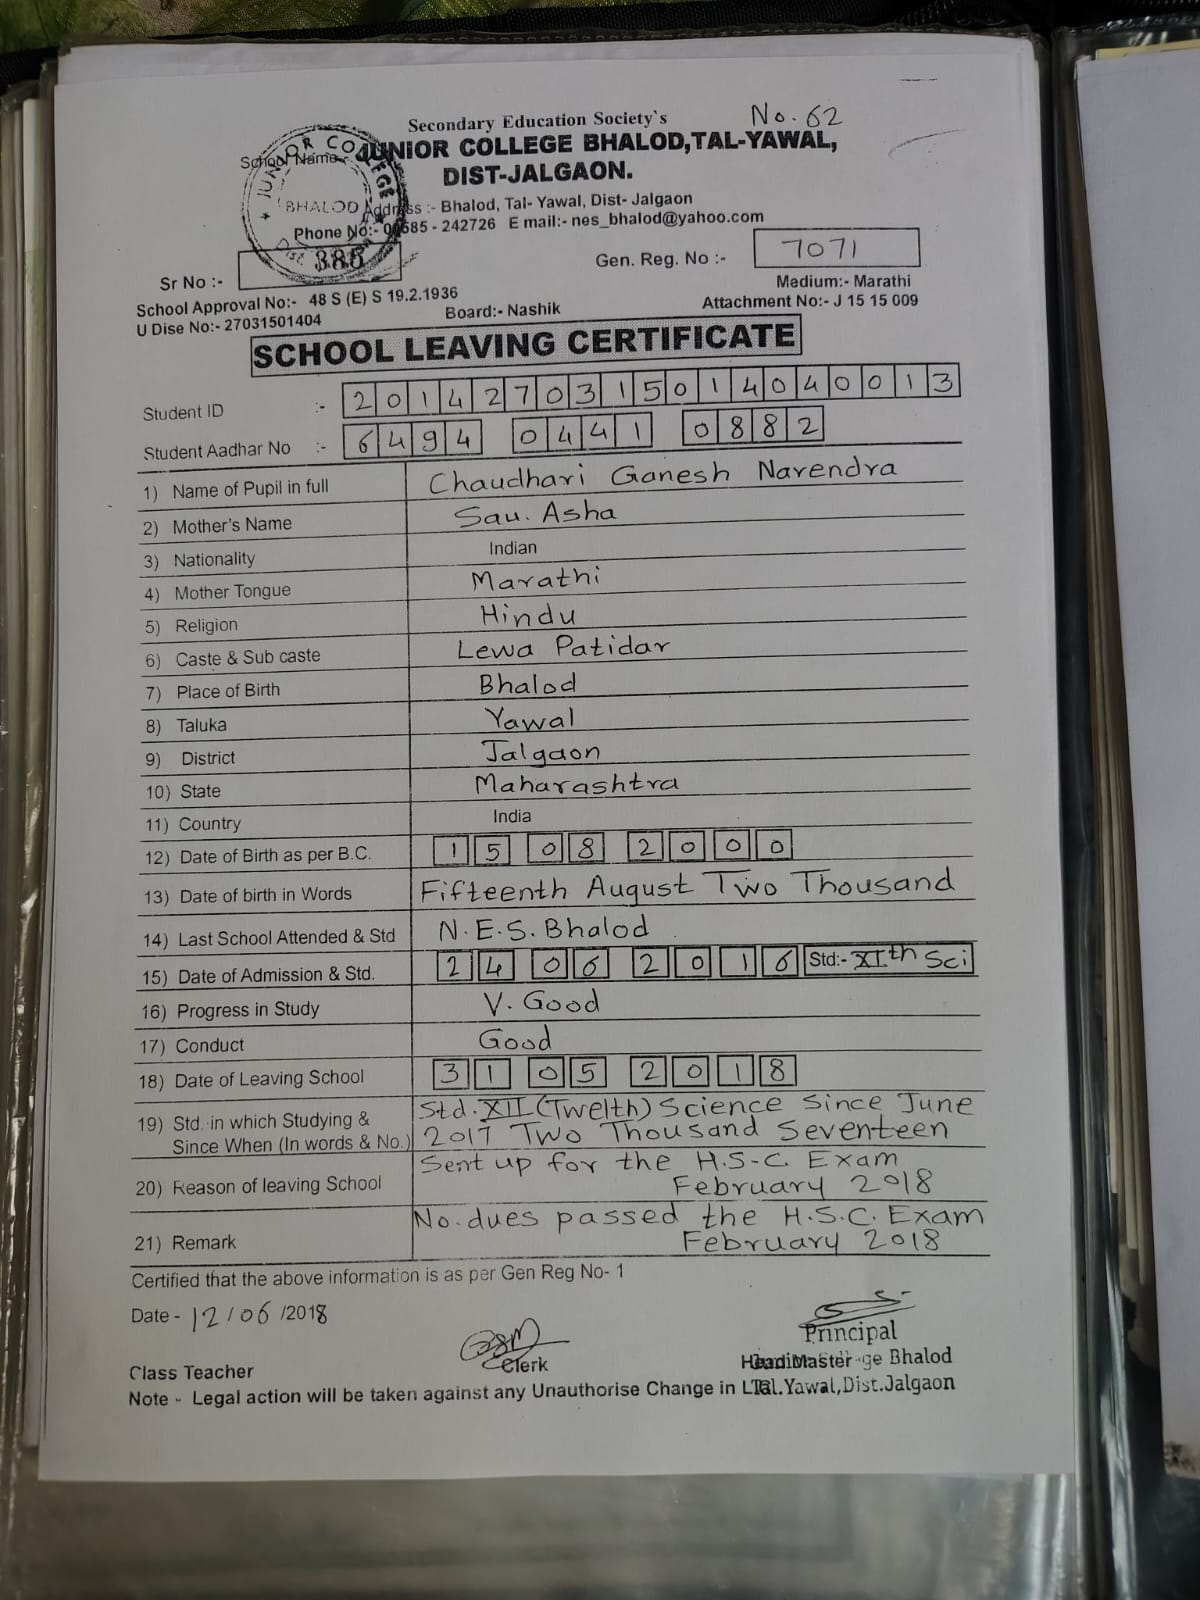 No. 62
Secondary Education Society`s
School Name - JUNIOR COLLEGE BHALOD,TAL-YAWAL,
DIST-JALGAON.
JUNIOR COLLEGE BHALOD Dist.
Address :- Bhalod, Tal- Yawal, Dist- Jalgaon
Phone No:- 02585 - 242726 E mail:- nes_bhalod@yahoo.com
Sr No :- 385 Gen. Reg. No :- 7071
Medium:- Marathi
School Approval No:- 48 S (E) S 19.2.1936 Board:- Nashik Attachment No:- J 15 15 009
U Dise No:- 27031501404
SCHOOL LEAVING CERTIFICATE
Student ID :- 2014270315014040013
Student Aadhar No :- 6494 0441 0882
1) Name of Pupil in full Chaudhari Ganesh Narendra
2) Mother's Name Sau. Asha
3) Nationality Indian
4) Mother Tongue Marathi
5) Religion Hindu
6) Caste & Sub caste Lewa Patidar
7) Place of Birth Bhalod
8) Taluka Yawal
9) District Jalgaon
10) State Maharashtra
11) Country India
12) Date of Birth as per B.C. 15 08 2000
13) Date of birth in Words Fifteenth August Two Thousand
14) Last School Attended & Std N.E.S. Bhalod
15) Date of Admission & Std. 24 06 2016 Std:- XIth Sci
16) Progress in Study V. Good
17) Conduct Good
18) Date of Leaving School 31 05 2018
19) Std. in which Studying & Std. XII (Twelth) Science Since June
Since When (In words & No.) 2017 Two Thousand Seventeen
20) Reason of leaving School Sent up for the H.S.C. Exam
February 2018
21) Remark No. dues passed the H.S.C. Exam
February 2018
Certified that the above information is as per Gen Reg No- 1
Date - 12/06/2018
Principal
Class Teacher Clerk Head Master ge Bhalod
Note - Legal action will be taken against any Unauthorise Change in Tal.Yawal,Dist.Jalgaon